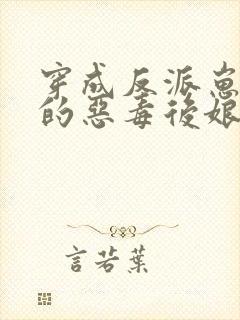 穿成反派崽
的惡毒後娘
言若葉